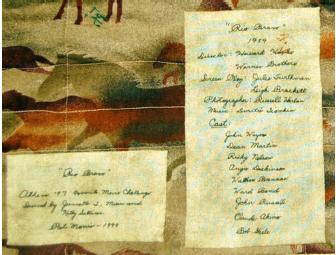 "Rio Bravo"
Athens '97 Favorite Movie Challenge
Quilted by Jeannette I. Muir and
Patty
1998
"Rio Bravo"
1959
Director: Howard Hawks
Warner Brothers
Screen Play: Jules Furthman
Leigh Brackett
Photographer: Russell Harlan
Music: Dimitri Tiomkin
Cast:
John Wayne
Dean Martin
Ricky Nelson
Angie Dickinson
Walter Brennan
Ward Bond
John Russell
Claude Akins
Bob Steele